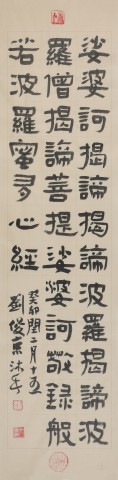 娑婆訶揭諦揭諦波羅揭諦波
羅僧揭諦菩提娑婆訶敬録般
若波羅蜜多心經
癸卯閏二月十五
劉俊京沐手